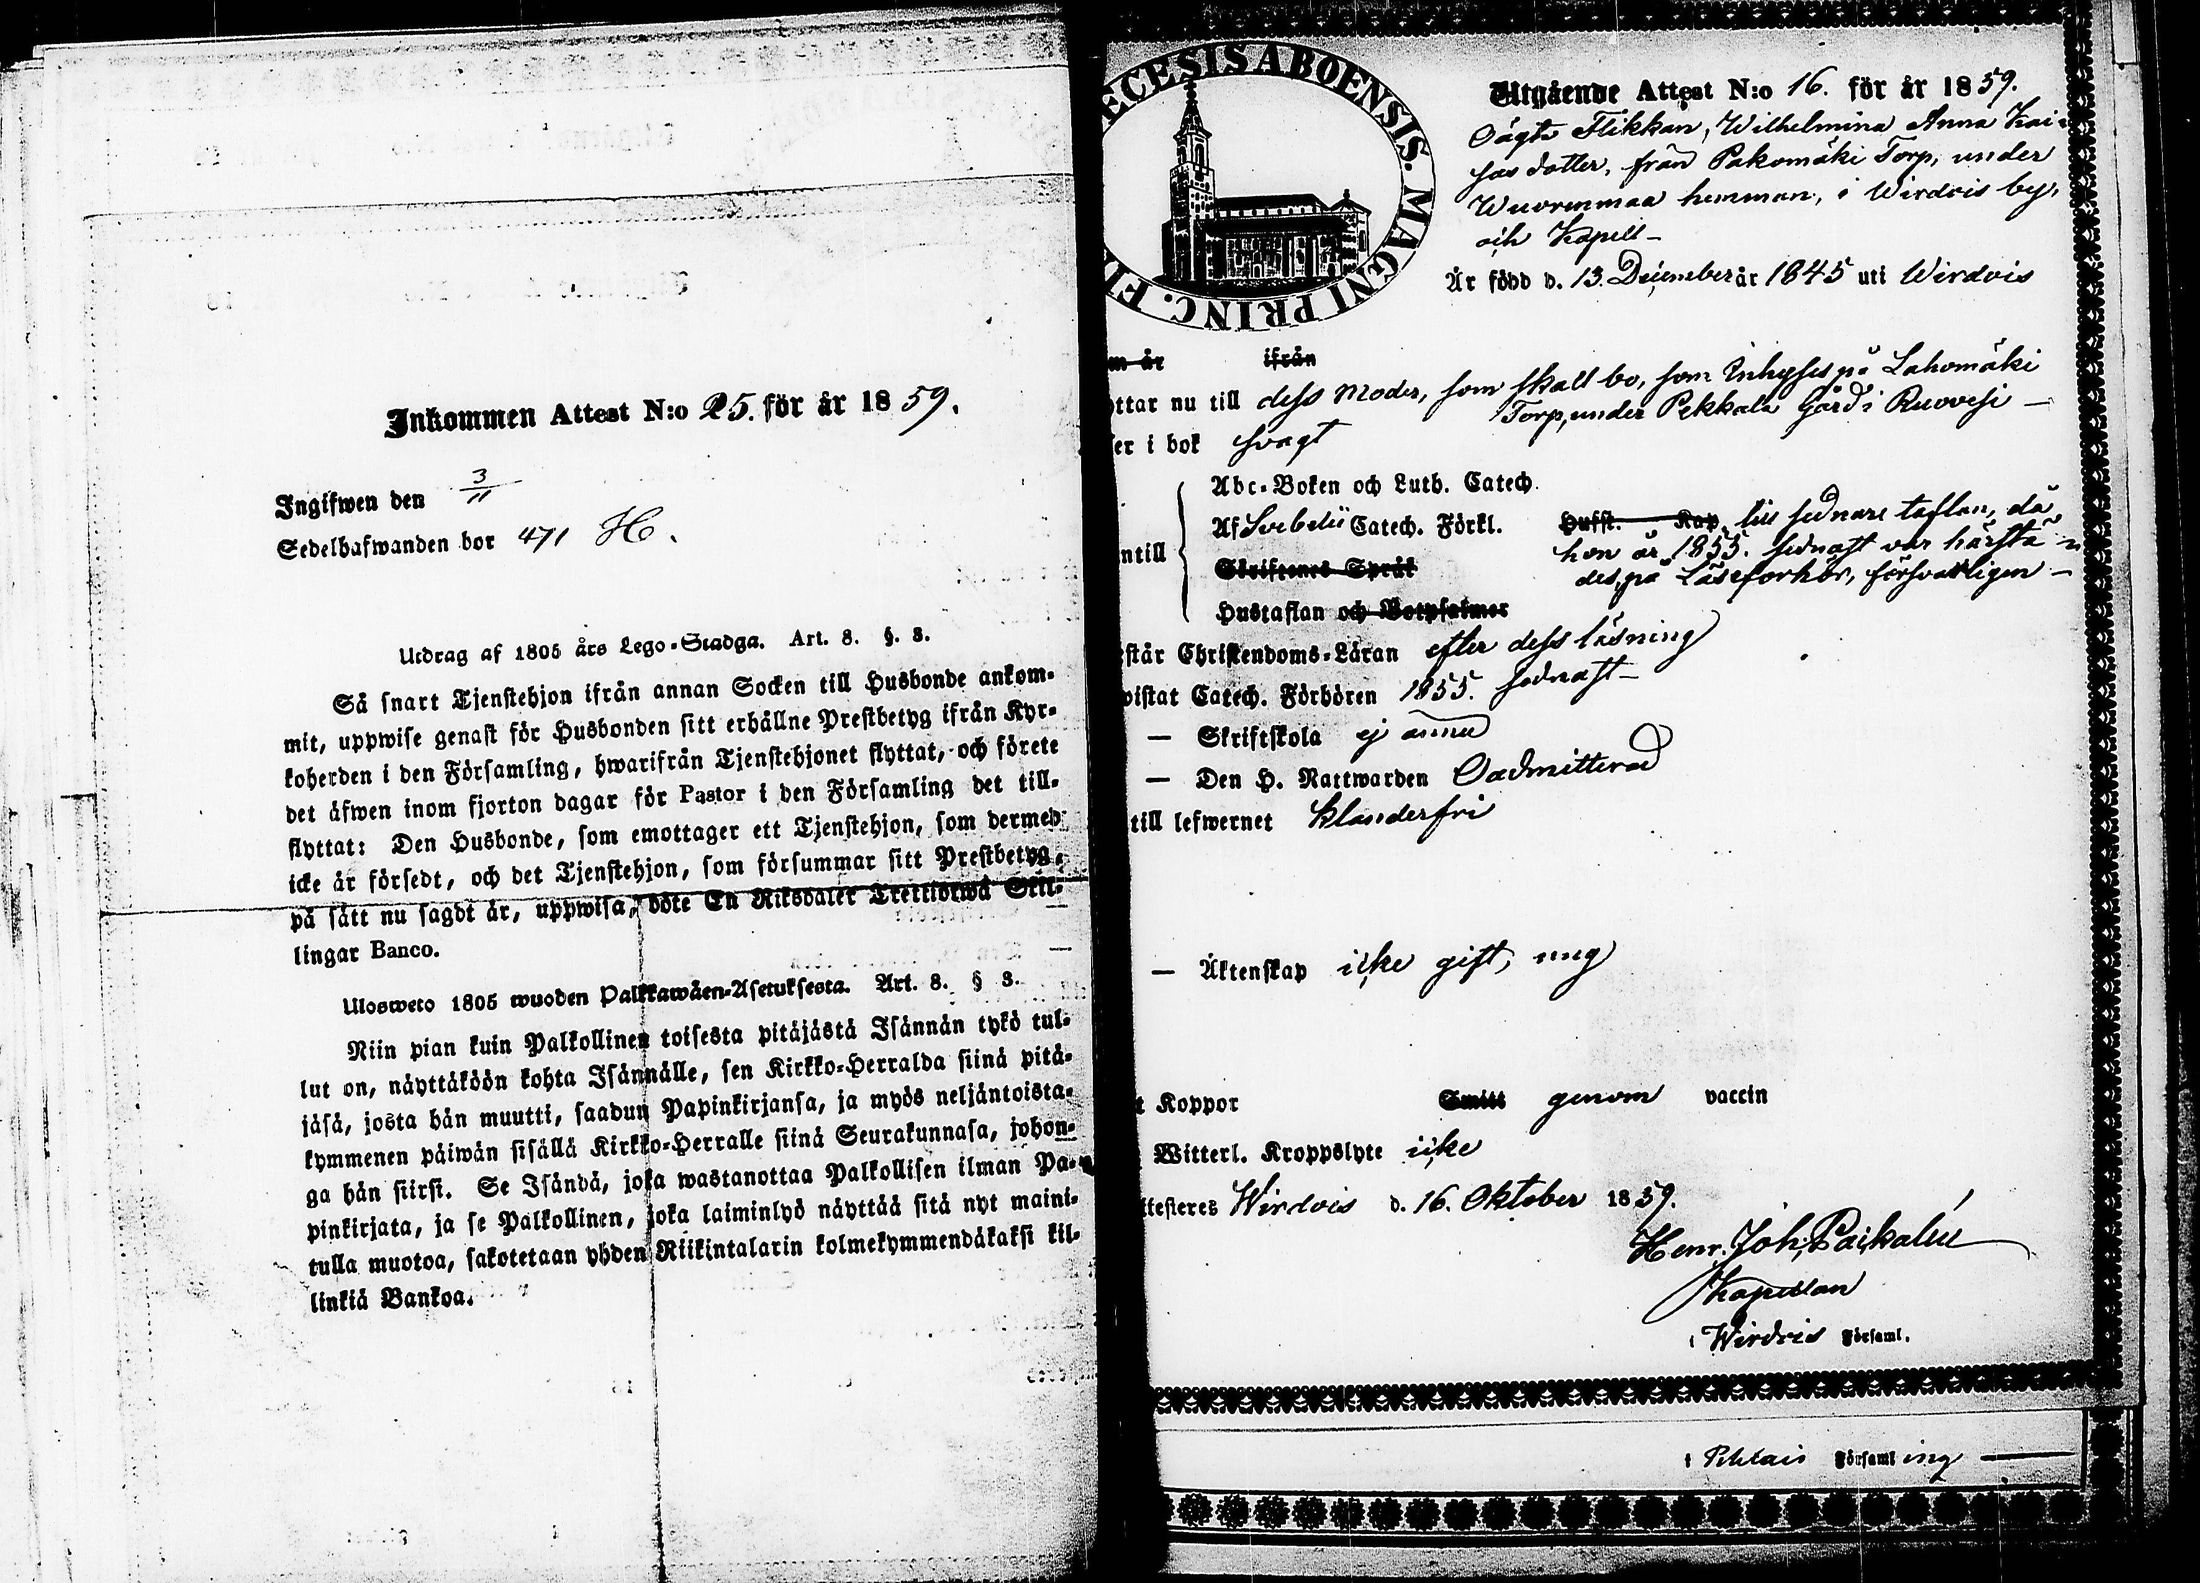 Inkommen Attest N:o 25. för år 1859.
Ingifwen den 3/11
Sedelhafwanden bor 471 H.
Utdrag af 1805 års Lego-Stadga. Art. 8. §. 3.
Så snart Tjenstehjon ifrån annan Socken till Husbonde ankom-
mit, uppwise genast för Husbonden sitt erhållne Prestbetyg ifrån Kyr-
koherden i den Församling, hwarifrån Tjenstehjonet flyttat, och förete
det äfwen inom fjorton dagar för Pastor i den Församling det till-
flyttat: Den Husbonde, som emottager ett Tjenstehjon, som dermed
icke är försedt, och det Tjenstehjon, som försummar sitt Prestbetyg,
på sätt nu sagdt är, uppwisa, böte En Riksdaler Trettiotwå Skil-
lingar Banco.
Ulosweto 1805 wuoden Palkkawäen-Asetuksesta. Art. 8. § 3.
Niin pian kuin Palkollinen toisesta pitäjästä Isännän tykö tul-
lut on, näyttäköön kohta Isännälle, sen Kirkko-Herralda siinä pitä-
jäsä, josta hän muutti, saadun Papinkirjansa, ja myös neljäntoista-
kymmenen päiwän sisällä Kirkko-Herralle siinä Seurakunnasa, johon-
ga hän siirsi. Se Isändä, joka wastanottaa Palkollisen ilman Pa-
pinkirjata, ja se Palkollinen, joka laiminlyö näyttää sitä nyt maini-
tulla muotoa, sakotetaan yhden Riikintalarin kolmekymmendäkaksi kil-
linkiä Bankoa.
ECESIS ABOENSIS. MAGNI PRINC. FI
Utgående Attest N:o 16. för år 1859.
Oägta Flikkan, Wilhelmina Anna Kai-
sas dotter, från Pakomäki Torp, under
Wuorenmaa hemman, i Wirdois by,
och Kapell –
Är född d. 13. December år 1845 uti Wirdois
m är ifrån
ttar nu till dess Moder, som skall bo, som Inhyses på Lahomäki
Torp, under Pekkala Gård i Ruovesi –
er i bok svagt
Abc-Boken och Luth. Catech.
Af Svebelii Catech. Förkl. Hufst. Kap. till sednare taflan, då
ntill hon år 1855. sednast var härstä-
Skriftenes Språk des, på Läseförhör, försvarligen –
Hustaflan och Botpsalmer
står Christendoms-Läran efter dess läsning
vistat Catech. Förhören 1855. sednast –
— Skriftskola ej ännu
— Den H. Nattwarden Oadmitterad
till lefwernet klanderfri
— Äktenskap icke gift, ung
t Koppor Smitt genom vaccin
Witterl. Kroppslyte icke
ttesteres Wirdois d. 16. Oktober 1859.
Henr. Joh.
Kapellan
i Wirdois Församl.
i Församling